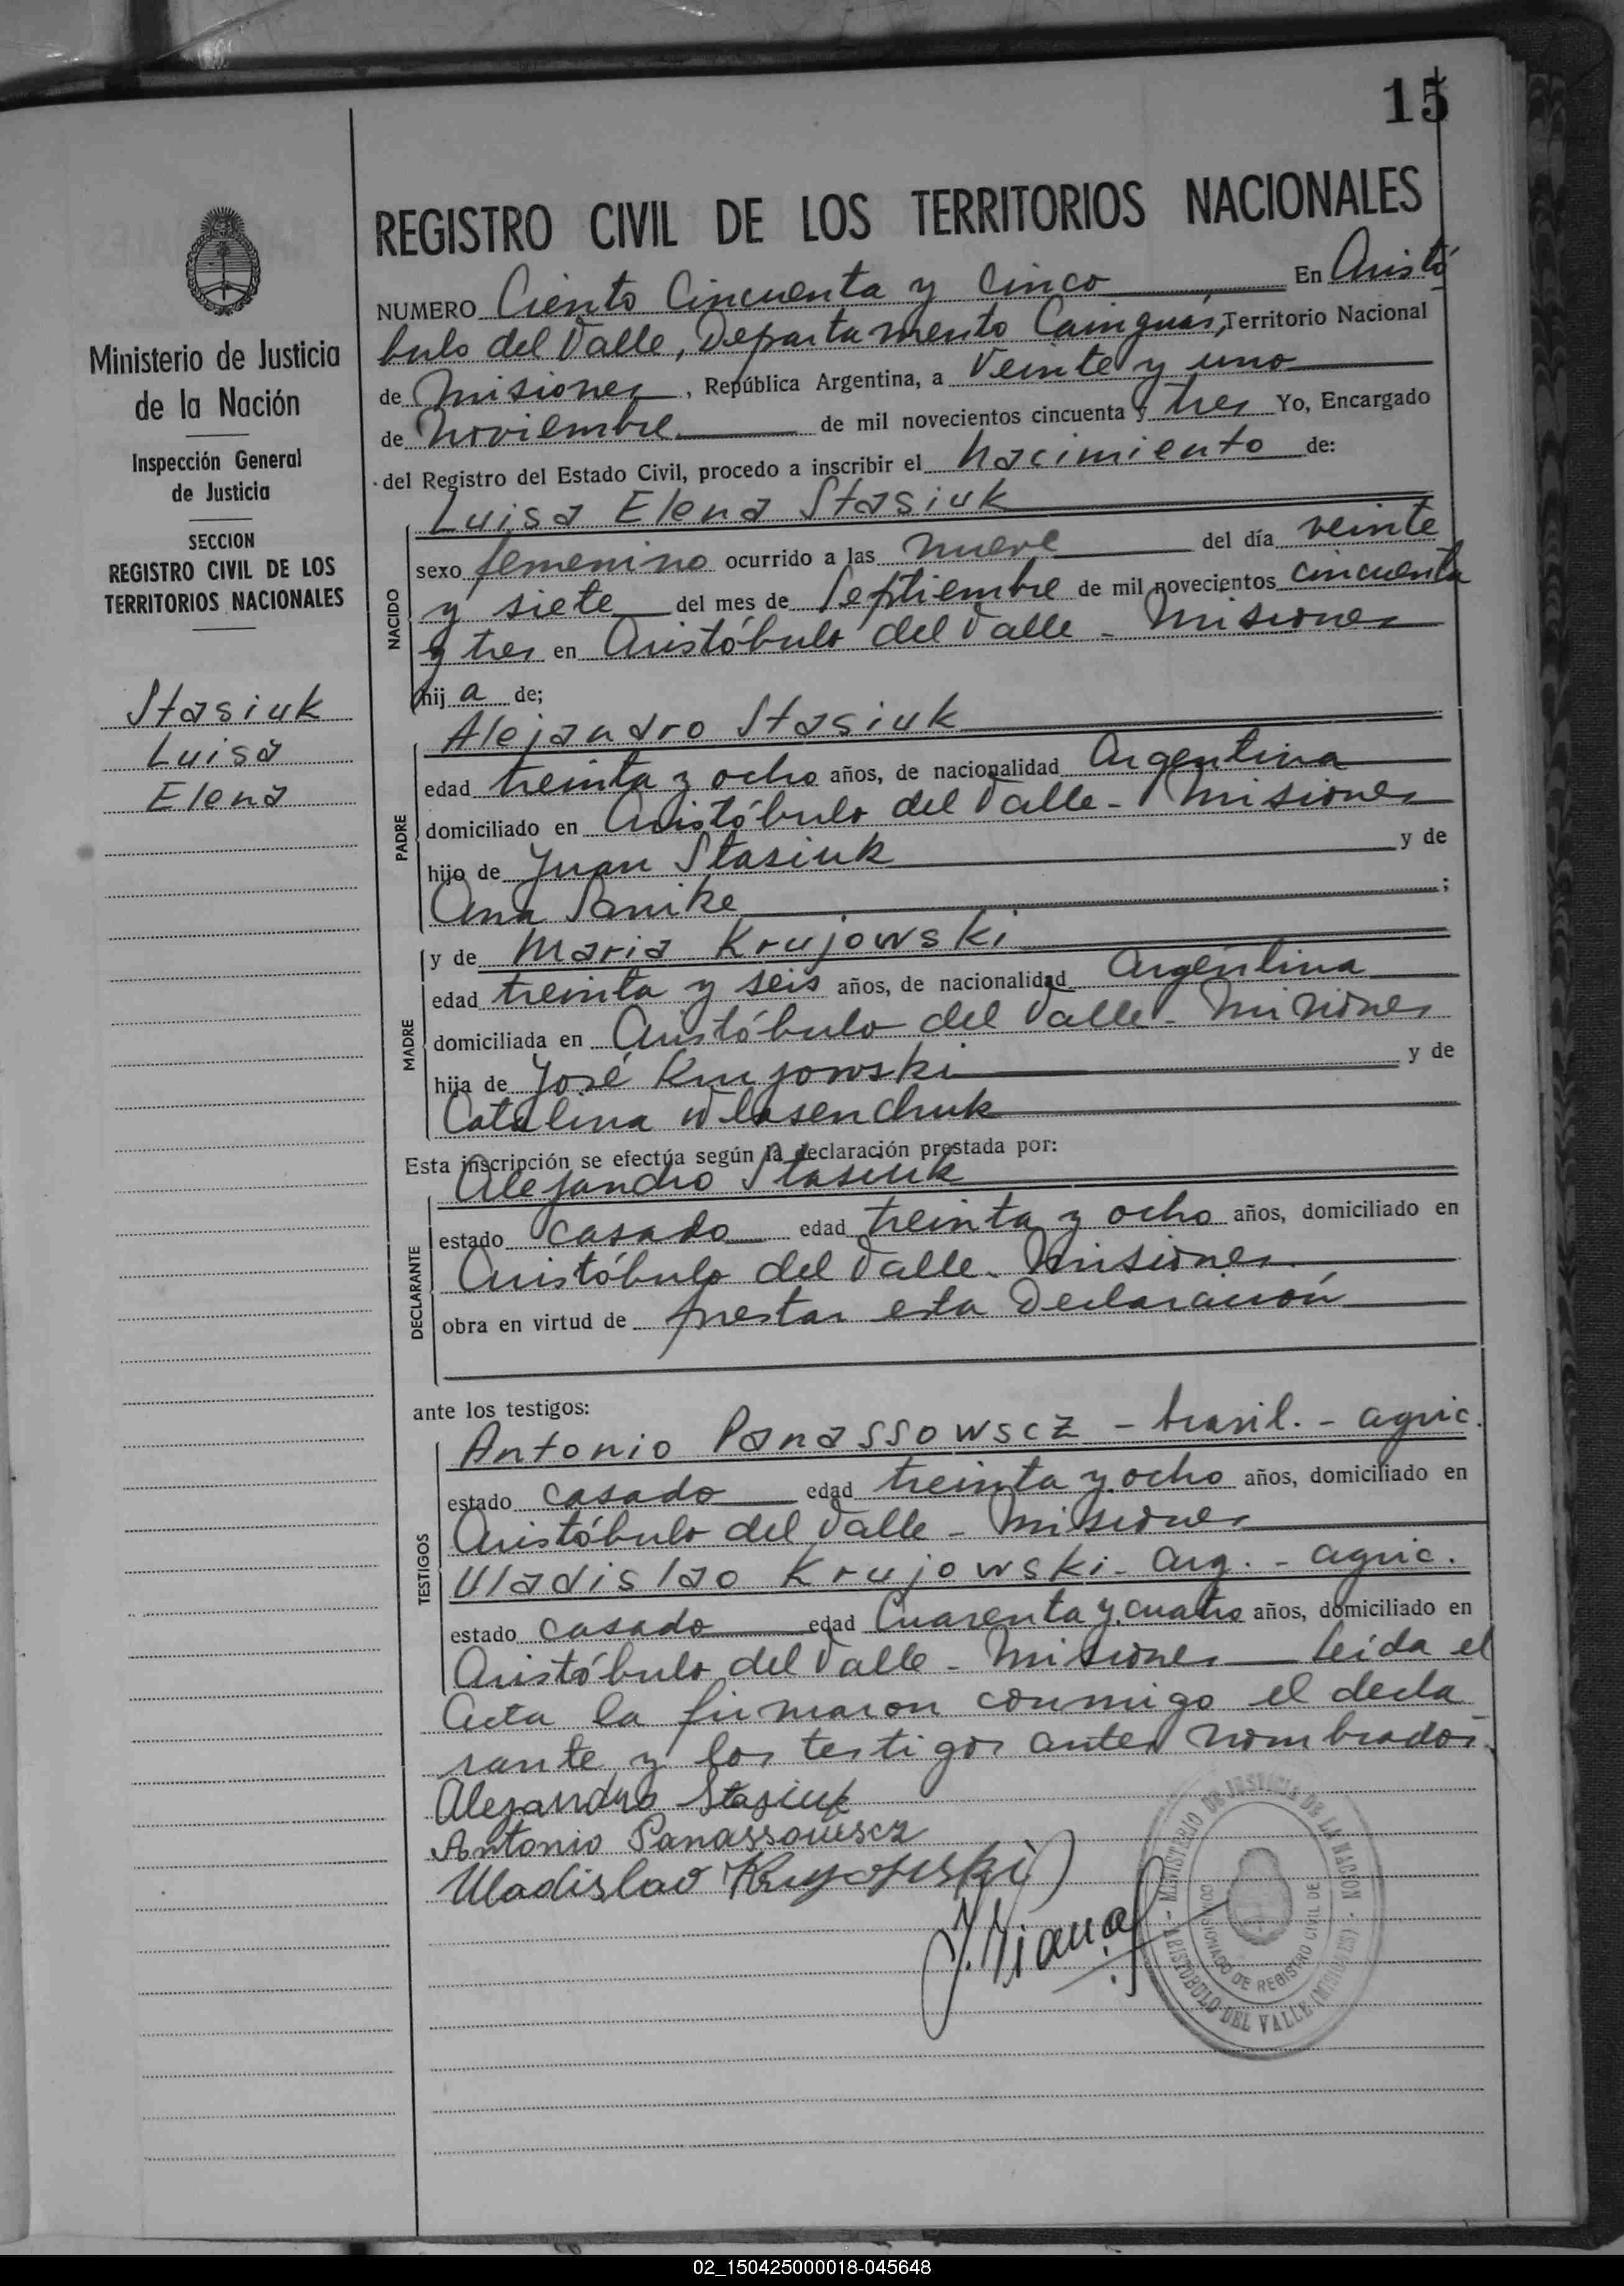 15
REGISTRO CIVIL DE LOS TERRITORIOS NACIONALES
Ministerio de Justicia
de la Nación
Inspección General
de Justicia
SECCION
REGISTRO CIVIL DE LOS
TERRITORIOS NACIONALES
Stasiuk
Luisa
Elena
NUMERO Ciento Cincuenta y Cinco En Aristó
bulo del Valle, Departamento Cainguás, Territorio Nacional
de Misiones, República Argentina, a Veinte y uno
de Noviembre de mil novecientos cincuenta y tres Yo, Encargado
del Registro del Estado Civil, procedo a inscribir el Nacimiento de:
NACIDO
Luisa Elena Stasiuk
sexo femenino ocurrido a las nueve del día veinte
y siete del mes de Septiembre de mil novecientos cincuenta
y tres en Aristóbulo del Valle - Misiones
hij a de;
PADRE
Alejandro Stasiuk
edad treinta y ocho años, de nacionalidad Argentina
domiciliado en Aristóbulo del Valle - Misiones
hijo de Juan Stasiuk y de
Ana Panike ;
MADRE
y de Maria Krujowski
edad treinta y seis años, de nacionalidad Argentina
domiciliada en Aristóbulo del Valle - Misiones
hija de José Krujowski y de
Catalina Wlasenchuk
Esta inscripción se efectúa según la declaración prestada por:
DECLARANTE
Alejandro Stasiuk
estado casado edad treinta y ocho años, domiciliado en
Aristóbulo del Valle - Misiones
obra en virtud de prestar esta Declaración
ante los testigos:
TESTIGOS
Antonio Panassowscz - brasil. - agric.
estado casado edad treinta y ocho años, domiciliado en
Aristóbulo del Valle - Misiones
Uladislao Krujowski - Arg. - agric.
estado casado edad Cuarenta y cuatro años, domiciliado en
Aristóbulo del Valle - Misiones leída el
Acta la firmaron conmigo el decla
rante y los testigos antes nombrados.
Alejandro Stasiuk
Antonio Panassowscz
Uladislao Krujowski
MINISTERIO DE JUSTICIA DE LA NACION
DE REGISTRO CIVIL DE
ARISTOBULO DEL VALLE (MISIONES)
02_150425000018-045648